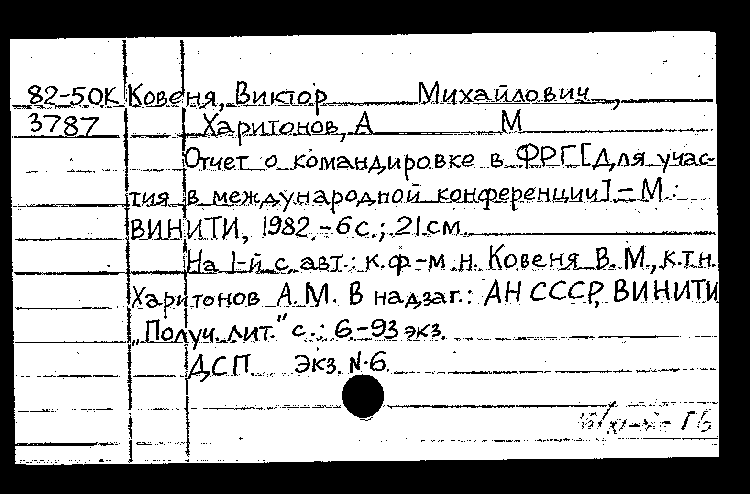 82-50К Ковеня, Виктор Михайлович,
3787 Харитонов, А М
Отчет о командировке в ФРГ [Для учас-
тия в международной конференции] – М.:
ВИНИТИ, 1982. – 6 с.; 21 см.
На 1-й с. авт.: к.ф-м.н. Ковеня В.М., к.т.н.
Харитонов А.М. В надзаг.: АН СССР, ВИНИТИ
„Получ. лит.” с.: 6-93 экз.
ДСП Экз. N.6
ГБ